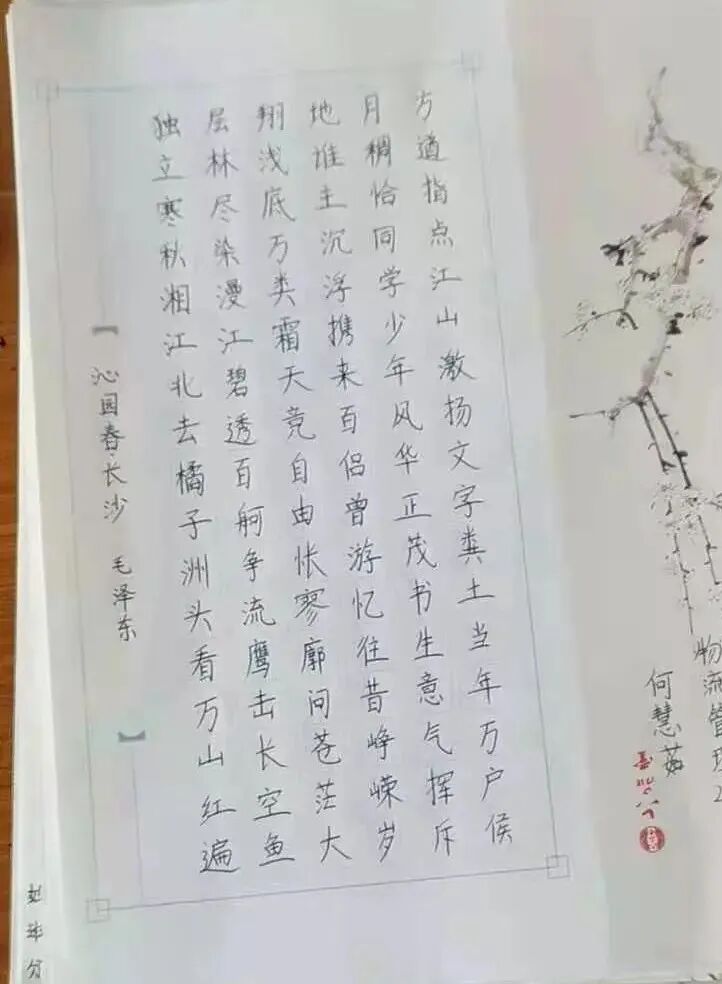 沁园春·长沙 毛泽东
独立寒秋湘江北去橘子洲头看万山红遍
层林尽染漫江碧透百舸争流鹰击长空鱼
翔浅底万类霜天竞自由怅寥廓问苍茫大
地谁主沉浮携来百侣曾游忆往昔峥嵘岁
月稠恰同学少年风华正茂书生意气挥斥
方遒指点江山激扬文字粪土当年万户侯
何慧茹
物流管理2